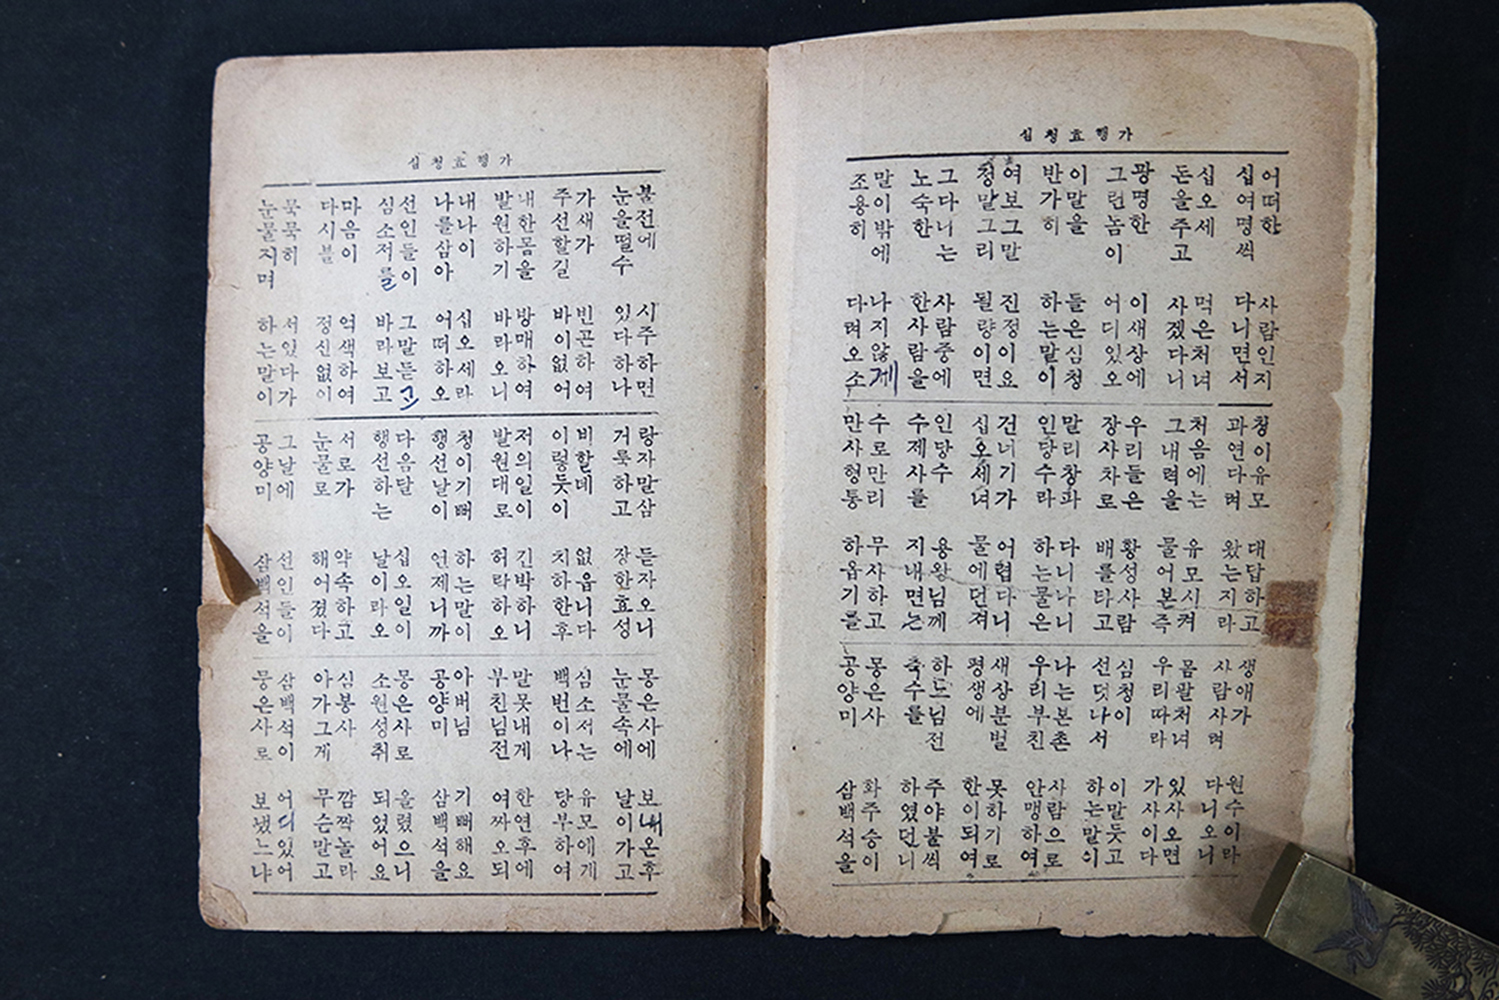 심청효행가
어떠한 사람인지
십여명씩 다니면서
십오세 먹은처녀
돈을주고 사겠다니
광명한 이새상에
그런놈이 어디있오
이말을 들은심청
반가히 하는말이
여보그말 진정이요
정말그리 될량이면
그다니는 사람중에
노숙한 한사람을
말이밖에 나지않게
조용히 다려오소
청이유모 대답하고
과연다려 왔는지라
처음에는 유모시켜
그내력을 물어본즉
우리들은 황성사람
장사차로 배를타고
말리창파 다니나니
인당수라 하는물은
건너기가 어렵다니
십오세녀 물에던져
인당수 용왕님께
수제사를 지내면는
수로만리 무사하고
만사형통 하옵기를
생애가 원수이라
사람사려 다니오니
몸팔처녀 있사오면
우리따라 가사이다
심청이 이말듯고
선덧나서 하는말이
나는본촌 사람으로
우리부친 안맹하여
새상분벌 못하기로
평생에 한이되여
하느님전 주야불씩
축수를 하였던니
몽은사 화주승이
공양미 삼백석을
심청효행가
불전에 시주하면
눈을떨수 있다하나
가새가 빈곤하여
주선할길 바이없어
내한몸을 방매하여
발원하기 바라오니
내나이 십오세라
나를삼아 어떠하오
선인들이 그말듣고
심소저를 바라보고
마음이 억색하여
다시불 정신없이
묵묵히 서있다가
눈물지며 하는말이
랑자말삼 듣자오니
거룩하고 장한효성
비할데 없읍니다
이렇듯이 치하한후
저의일이 긴박하니
발원대로 허락하오
청이기뻐 하는말이
행선날이 언제니까
다음달 십오일이
행선하는 날이라오
서로가 약속하고
눈물로 해어졌다
그날에 선인들이
공양미 삼백석을
몽은사에 보내온후
눈물속에 날이가고
심소저는 유모에게
백번이나 당부하여
말못내게 한연후에
부친님전 여짜오되
아버님 기뻐해요
공양미 삼백석을
몽은사로 올렸으니
소원성취 되었어요
심봉사 깜짝놀라
아가그게 무슨말고
삼백석이 어디있어
몽은사로 보냈느냐